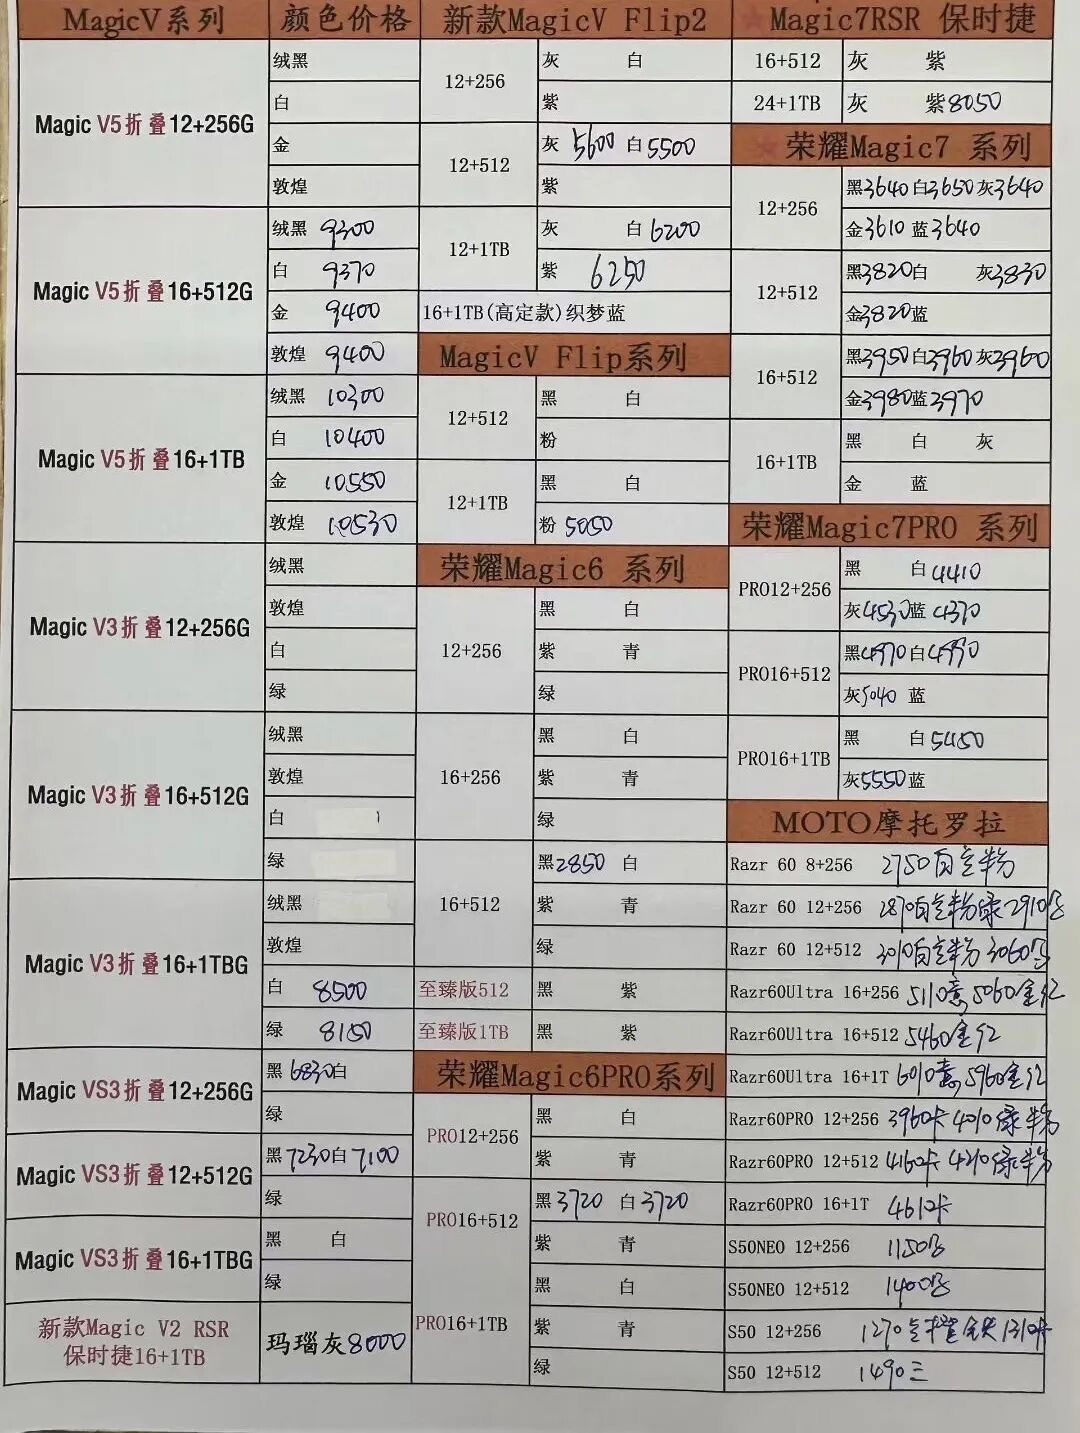 MagicV系列 颜色价格
Magic V5折叠12+256G
绒黑
白
金
敦煌
Magic V5折叠16+512G
绒黑 9300
白 9370
金 9400
敦煌 9400
Magic V5折叠16+1TB
绒黑 10300
白 10400
金 10550
敦煌 10530
Magic V3折叠12+256G
绒黑
敦煌
白
绿
Magic V3折叠16+512G
绒黑
敦煌
白
绿
Magic V3折叠16+1TBG
绒黑
敦煌
白 8500
绿 8150
Magic VS3折叠12+256G
黑6830白
绿
Magic VS3折叠12+512G
黑7230白7100
绿
Magic VS3折叠16+1TBG
黑 白
绿
新款Magic V2 RSR
保时捷16+1TB
玛瑙灰8000
新款MagicV Flip2
12+256
灰 白
紫
12+512
灰 5600 白5500
紫
12+1TB
灰 白6200
紫 6250
16+1TB(高定款)织梦蓝
MagicV Flip系列
12+512
黑 白
粉
12+1TB
黑 白
粉 5050
荣耀Magic6 系列
12+256
黑 白
紫 青
绿
16+256
黑 白
紫 青
绿
16+512
黑2850 白
紫 青
绿
至臻版512 黑 紫
至臻版1TB 黑 紫
荣耀Magic6PRO系列
PRO12+256
黑 白
紫 青
PRO16+512
黑3720 白3720
紫 青
PRO16+1TB
黑 白
紫 青
绿
Magic7RSR 保时捷
16+512 灰 紫
24+1TB 灰 紫8050
荣耀Magic7 系列
12+256
黑3640白3650灰3640
金3610蓝3640
12+512
黑3820白 灰3830
金3820蓝
16+512
黑3950白3960灰3960
金3980蓝3970
16+1TB
黑 白 灰
金 蓝
荣耀Magic7PRO 系列
PRO12+256
黑 白4410
灰4530蓝4370
PRO16+512
黑4970白4990
灰5040 蓝
PRO16+1TB
黑 白5450
灰5550蓝
MOTO摩托罗拉
Razr 60 8+256 2750 粉
Razr 60 12+256 2870 粉绿2910
Razr 60 12+512 3010 粉3060
Razr60Ultra 16+256 5110 5060金红
Razr60Ultra 16+512 5460金红
Razr60Ultra 16+1T 6010 5960金红
Razr60PRO 12+256 3960卡 4010绿粉
Razr60PRO 12+512 4160卡 4210绿粉
Razr60PRO 16+1T 461 卡
S50NEO 12+256 1150
S50NEO 12+512 1400
S50 12+256 1270 1310
S50 12+512 1490三